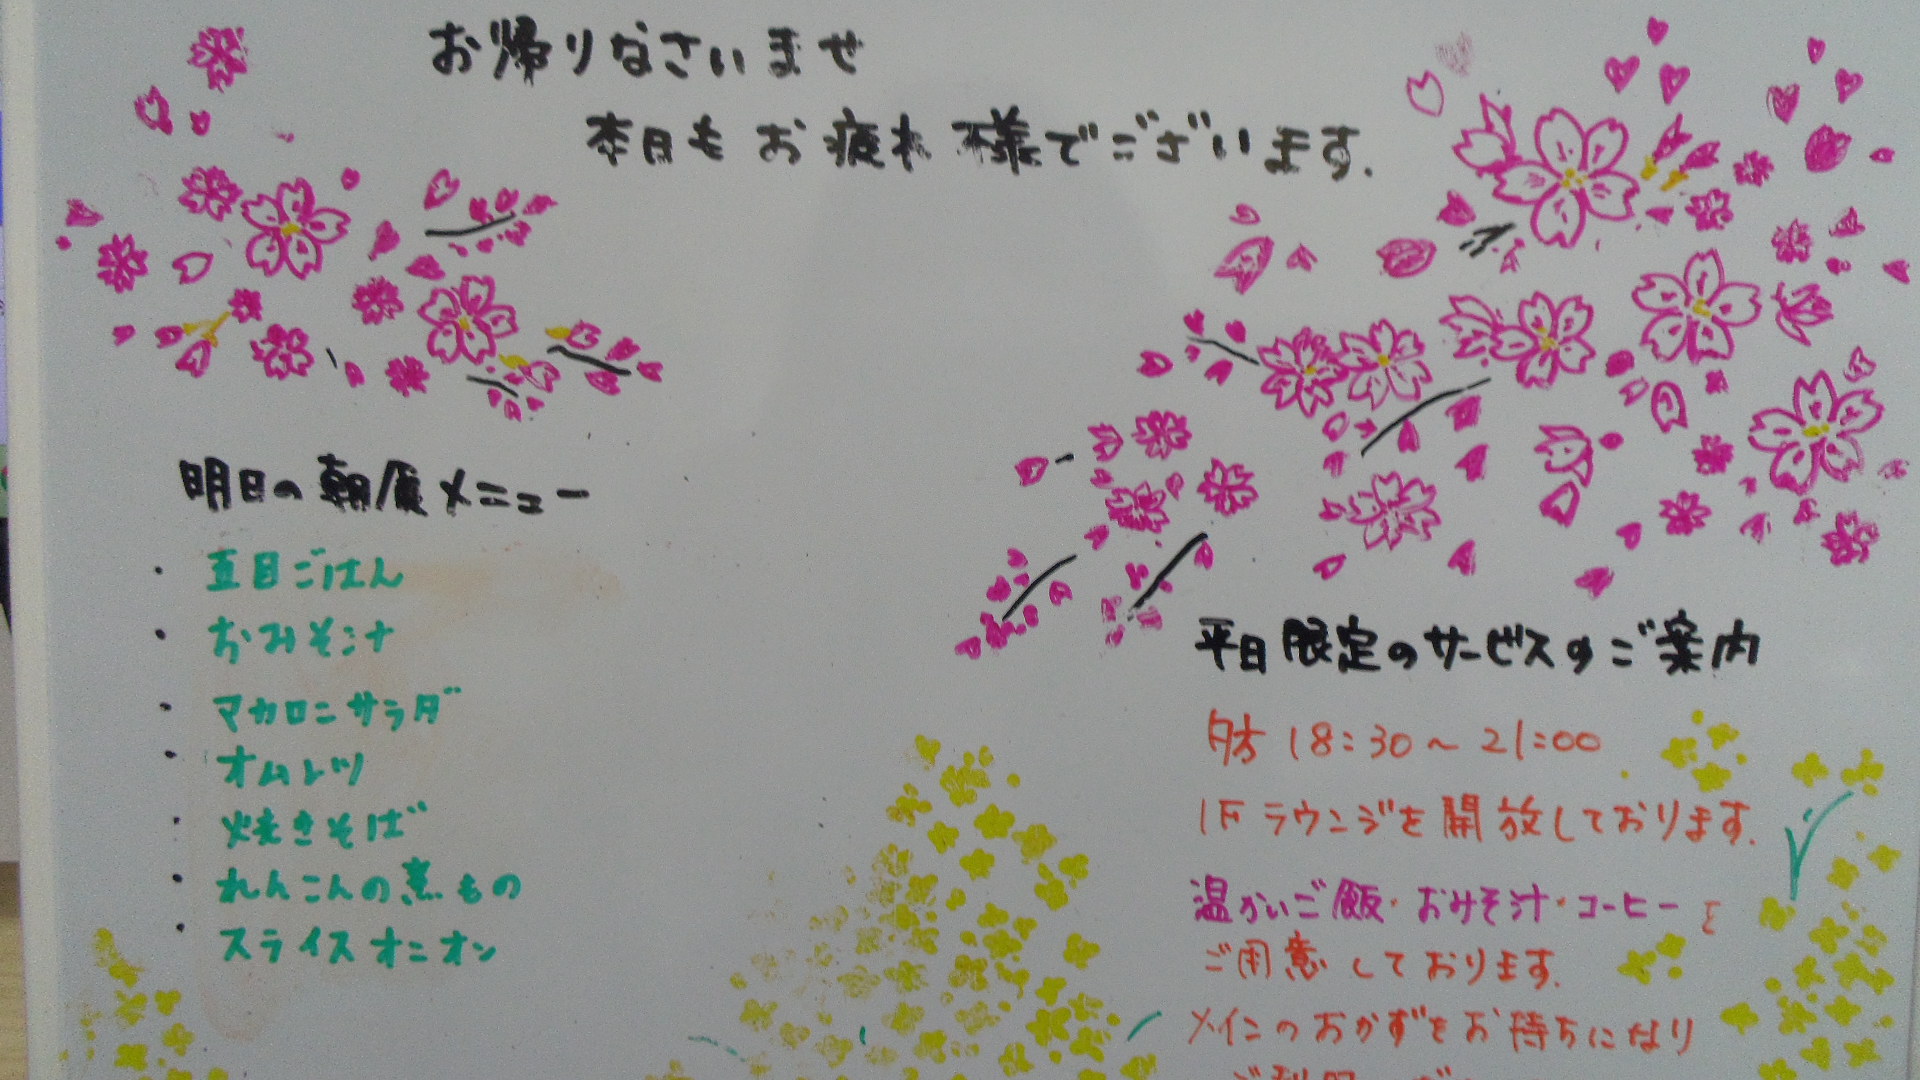 お帰りなさいませ
本日もお疲れ様でございます.
明日の朝食メニュー
・五目ごはん
・おみそ汁
・マカロニサラダ
・オムレツ
・焼きそば
・れんこんの煮もの
・スライスオニオン
平日限定のサービスのご案内
夕方 18:30～21:00
1Fラウンジを開放しております.
温かいご飯・おみそ汁・コーヒーを
ご用意しております.
メインのおかずをお持ちになり